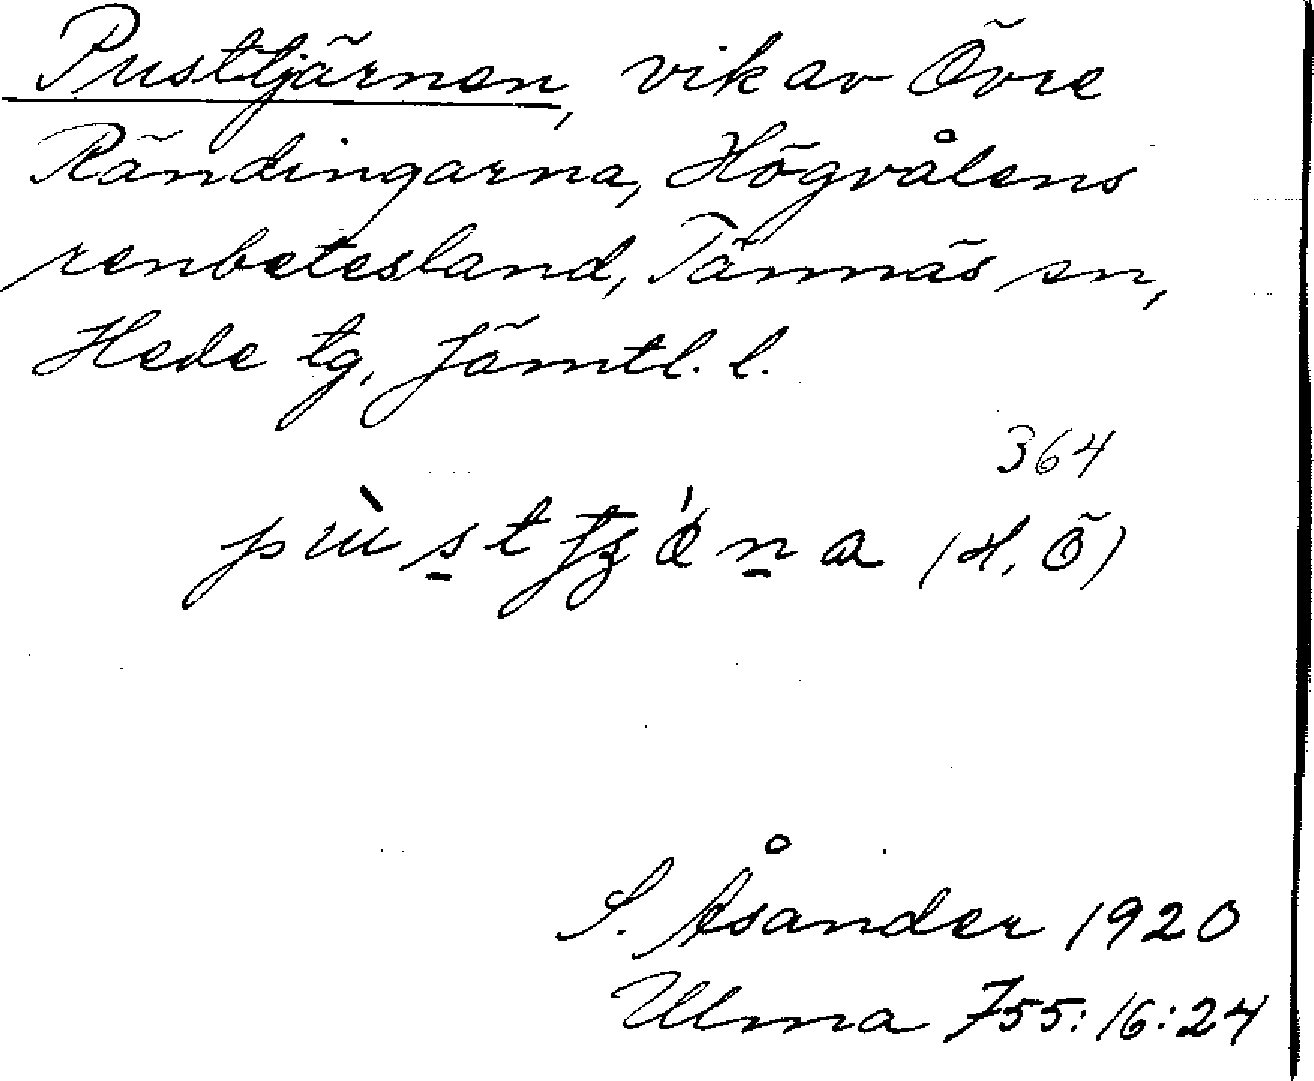 Pusttjärnen, vik av Övre
Rändingarna, Högvålens
renbetesland, Tännäs sn,
Hede tg, Jämtl. l.
364
(H. Ö)
S. Åsander 1920
Ulma 755:16:24